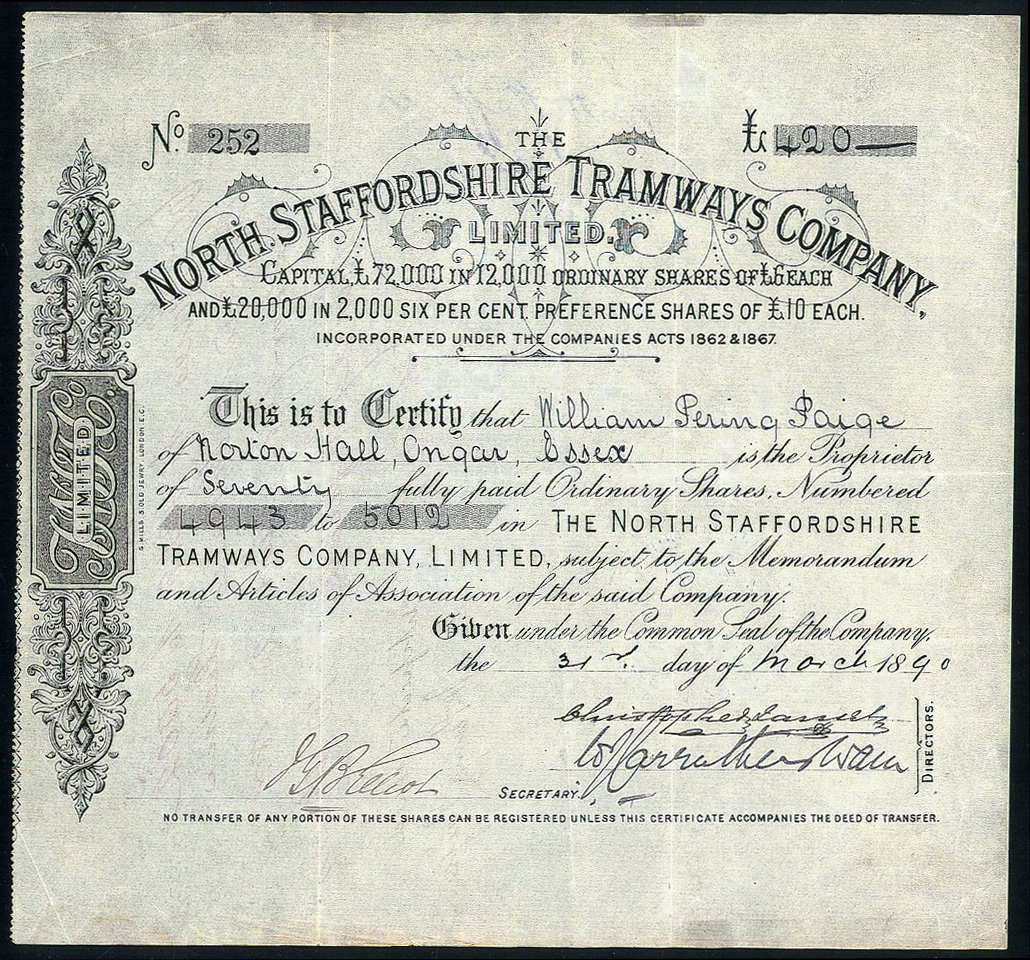 No. 252
£ 420
THE
NORTH STAFFORDSHIRE TRAMWAYS COMPANY,
LIMITED.
CAPITAL, £72,000 IN 12,000 ORDINARY SHARES OF £6 EACH
AND £20,000 IN 2,000 SIX PER CENT. PREFERENCE SHARES OF £10 EACH.
INCORPORATED UNDER THE COMPANIES ACTS 1862 & 1867.
This is to Certify that William Pering Paige
of Norton Hall, Ongar, Essex is the Proprietor
of Seventy fully paid Ordinary Shares, Numbered
4943 to 5012 in THE NORTH STAFFORDSHIRE
TRAMWAYS COMPANY, LIMITED, subject to the Memorandum
and Articles of Association of the said Company.
Given under the Common Seal of the Company,
the 31st day of March 1890
DIRECTORS.
SECRETARY.
NO TRANSFER OF ANY PORTION OF THESE SHARES CAN BE REGISTERED UNLESS THIS CERTIFICATE ACCOMPANIES THE DEED OF TRANSFER.
LIMITED
LONDON. E.C.